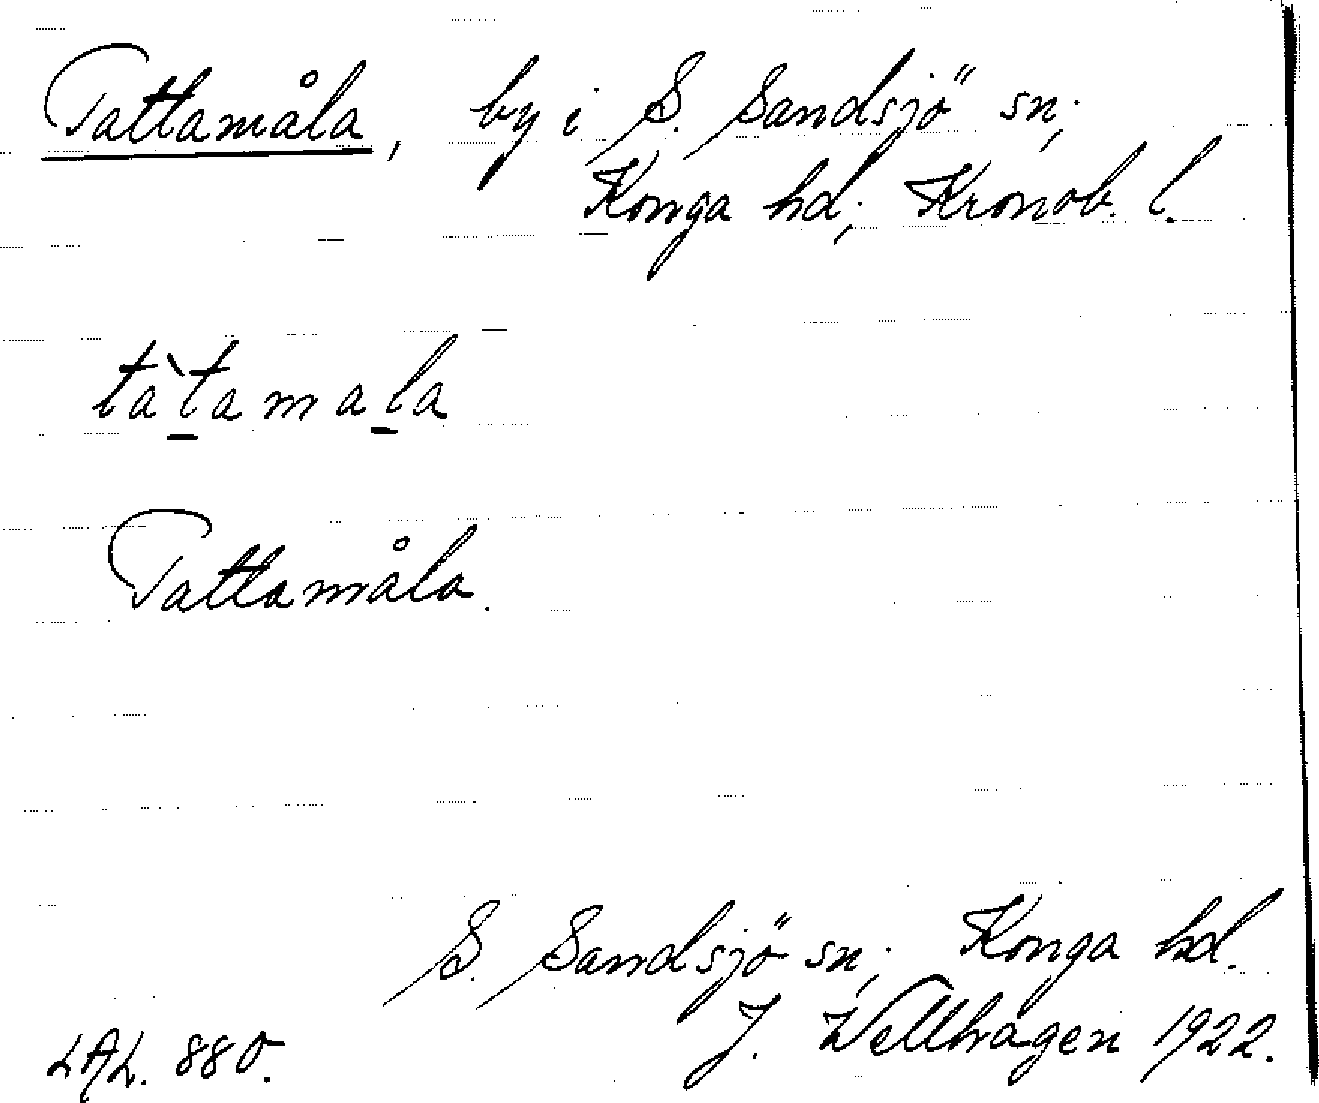 Tattamåla, by i S. Sandsjö sn.,
Konga hd., Kronob. l.
tàtamala
Tattamåla.
S. Sandsjö sn., Konga hd.
J. Wellhagen 1922.
LAL. 880.